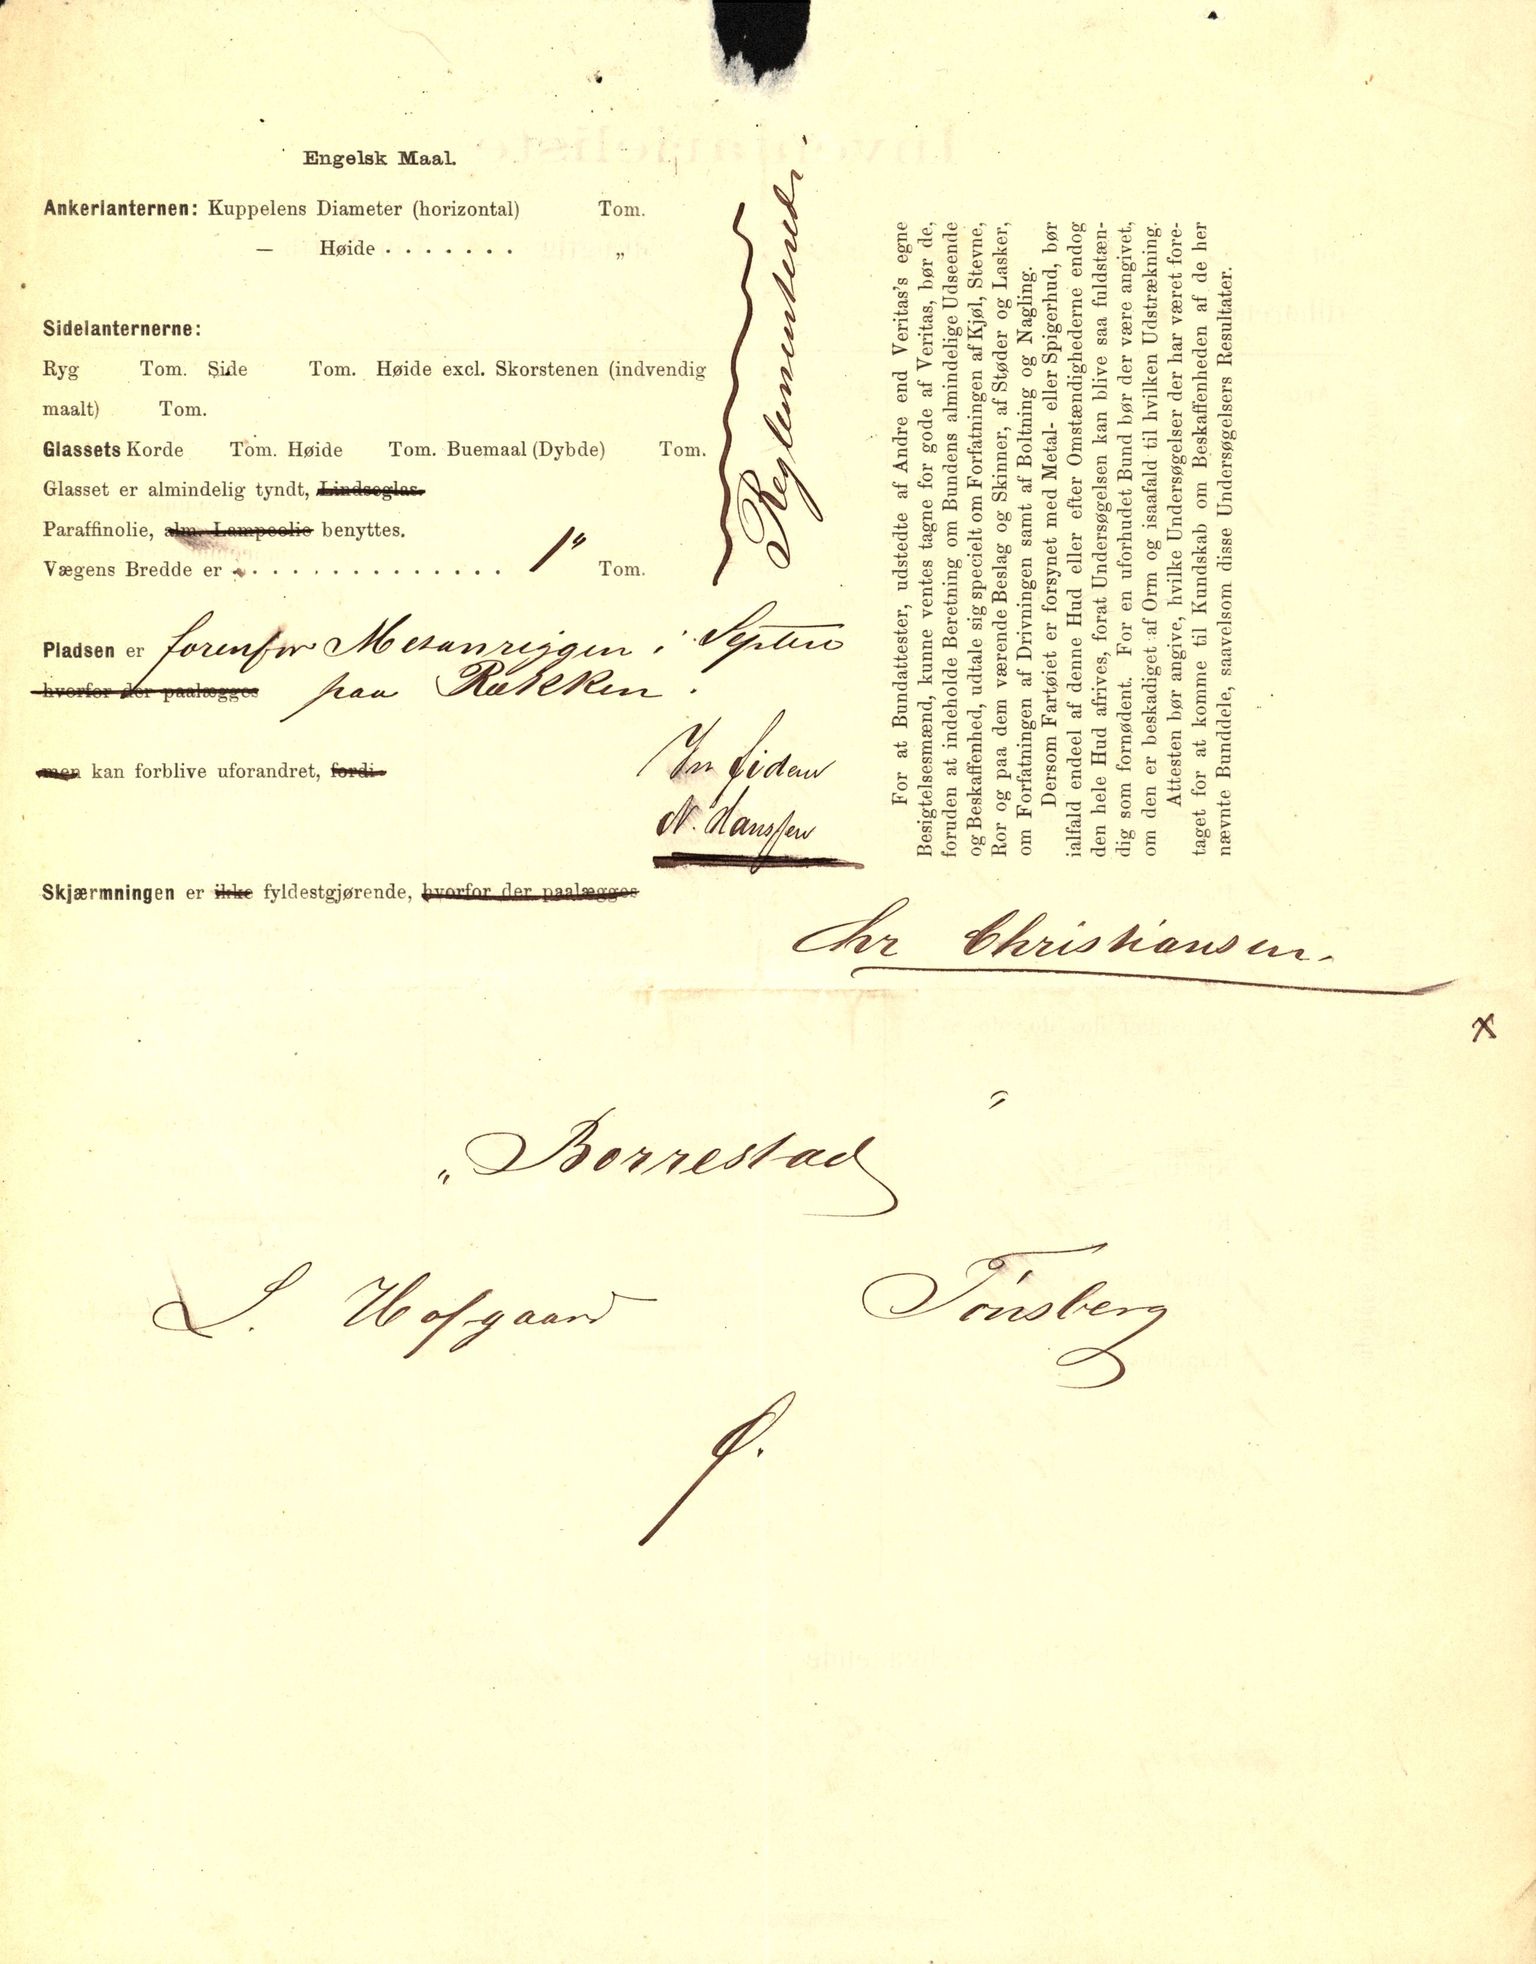 Engelsk Maal.
Ankerlanternen: Kuppelens Diameter (horizontal) Tom.
— Høide . . . . . . . „
Sidelanternerne:
Ryg Tom. Side Tom. Høide excl. Skorstenen (indvendig
maalt) Tom.
Glassets Korde Tom. Høide Tom. Buemaal (Dybde) Tom.
Glasset er almindelig tyndt, Lindseglas.
Paraffinolie, alm. Lampeolie benyttes.
Vægens Bredde er . . . . . . . . . . . . . . 1" Tom.
Reglementerede
Pladsen er forenfor Mesanriggen i
hvorfor der paalægges paa Rækken.
men kan forblive uforandret, fordi
N. Hanssen
Skjærmningen er ikke fyldestgjørende, hvorfor der paalægges
For at Bundattester, udstedte af Andre end Veritas's egne
Besigtelsesmænd, kunne ventes tagne for gode af Veritas, bør de,
foruden at indeholde Beretning om Bundens almindelige Udseende
og Beskaffenhed, udtale sig specielt om Forfatningen af Kjøl, Stevne,
Ror og paa dem værende Beslag og Skinner, af Støder og Lasker,
om Forfatningen af Drivningen samt af Boltning og Nagling.
Dersom Fartøiet er forsynet med Metal- eller Spigerhud, bør
ialfald endeel af denne Hud eller efter Omstændighederne endog
den hele Hud afrives, forat Undersøgelsen kan blive saa fuldstæn-
dig som fornødent. For en uforhudet Bund bør der være angivet,
om den er beskadiget af Orm og isaafald til hvilken Udstrækning.
Attesten bør angive, hvilke Undersøgelser der har været fore-
taget for at komme til Kundskab om Beskaffenheden af de her
nævnte Bunddele, saavelsom disse Undersøgelsers Resultater.
Chr Christiansen.
x
„Borrestad"
L. Hofgaard Tønsberg